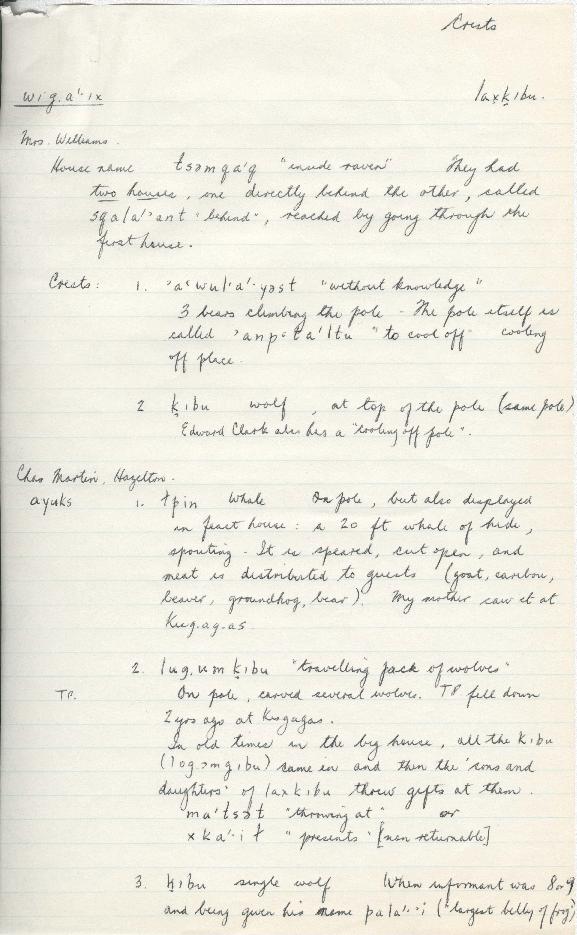 Crests
wig.a'·ix laxḵibu.
Mrs. Williams.
House name tsəmqa'q "inside raven" They had
two houses, one directly behind the other, called
sqala'·ant "behind", reached by going through the
first house.
Crests: 1. 'a'wul'a'·yəst "without knowledge"
3 bears climbing the pole - The pole itself is
called 'anp·ta'ltu "to cool off" cooling
off place.
2 ḵibu wolf, at top of the pole (same pole)
Edward Clark also has a "cooling off pole".
Chas Martin, Hazelton.
ayuks 1. łpin Whale On pole, but also displayed
in feast house: a 20 ft whale of hide,
spouting - It is speared, cut open, and
meat is distributed to guests (goat, caribou,
beaver, groundhog, bear). My mother saw it at
Kısg.ag.as.
2. lug.um ḵibu "travelling pack of wolves"
TP. On pole, carved several wolves. TP fell down
2 yrs ago at Kisgagas.
In old times in the big house, all the Kibu
(log.əmgibu) came in and then the 'sons and
daughters' of laxkibu threw gifts at them.
'ma'tsət "throwing at" or
xka'·it "presents" [non returnable]
3. ḵibu single wolf When informant was 8 or 9
and being given his name pala'·i ("largest belly of frog")